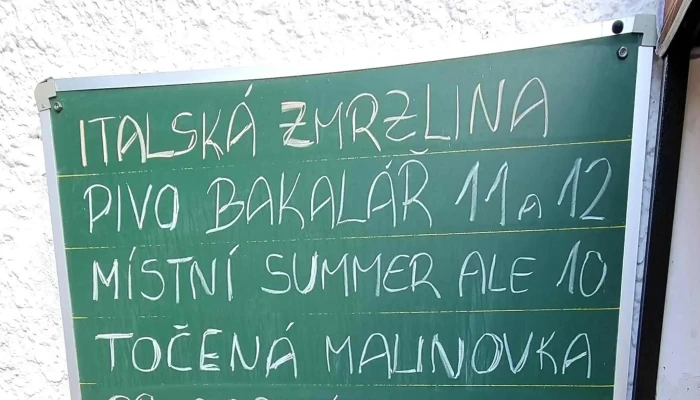 ITALSKÁ ZMRZLINA
PIVO BAKALÁŘ 11 A 12
MÍSTNÍ SUMMER ALE 10
TOČENÁ MALINOVKA